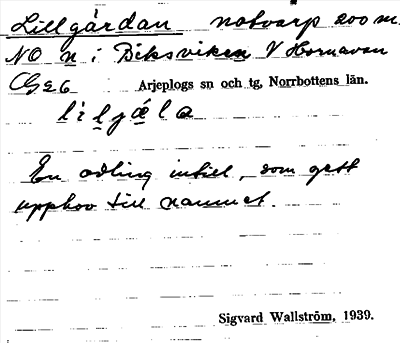 Lillgårdan notvarp 200 m.
NO n i Biksviken V Hornavan
Arjeplogs sn och tg, Norrbottens län.
En odling intill, som gett
upphov till namnet.
Sigvard Wallström, 1939.